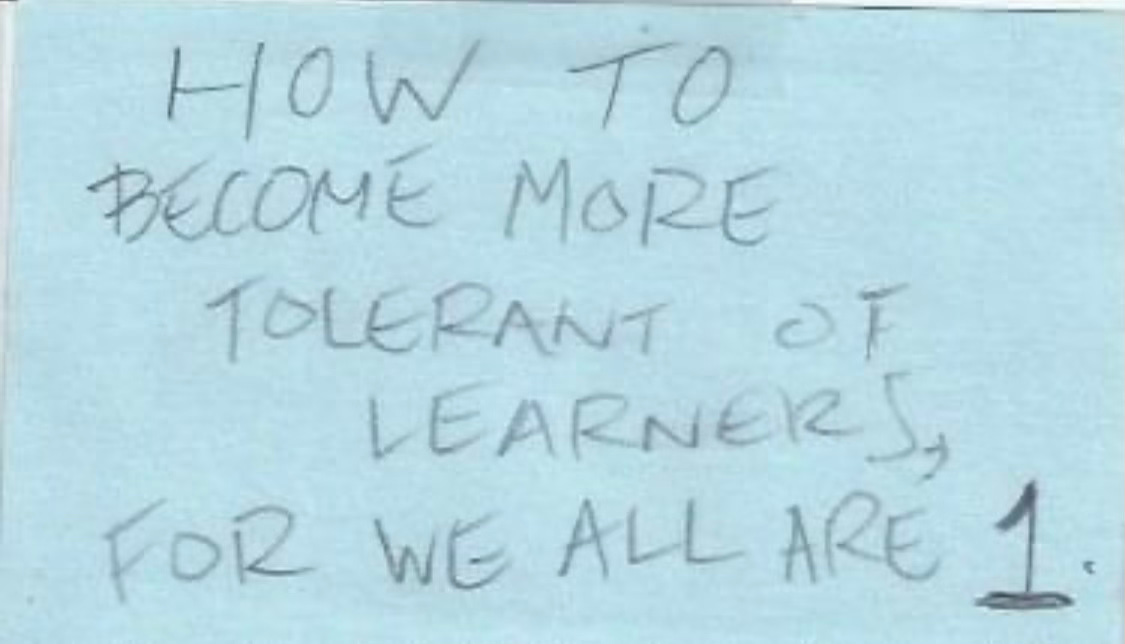 HOW TO
BECOME MORE
TOLERANT OF
LEARNERS,
FOR WE ALL ARE 1.